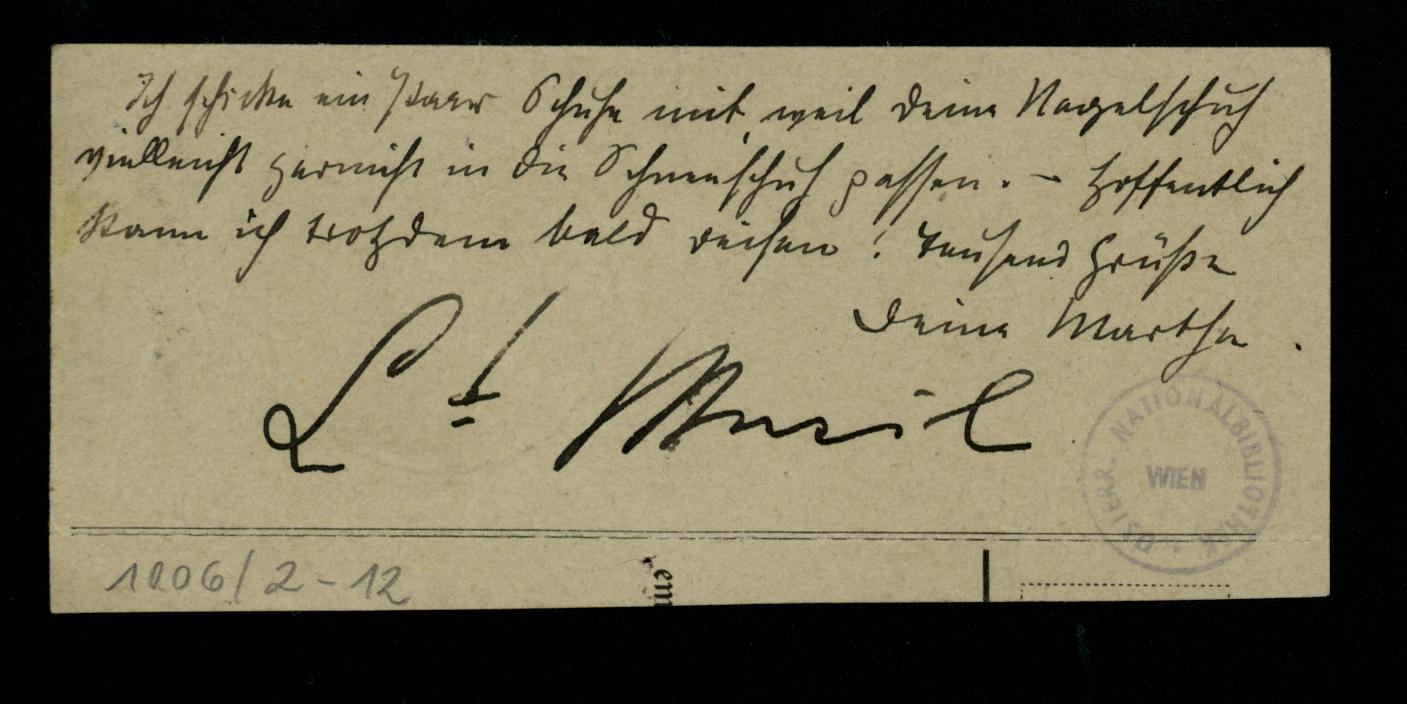 Ich schicke ein Paar Schuhe mit, weil deine Nagelschuh
vielleicht garnicht in die Schneeschuh passen. – Hoffentlich
kann ich trotzdem bald reisen! Tausend Grüße
Deine Martha.
Lt Musil
ÖSTERR. NATIONALBIBLIOTHEK
WIEN
1006/2-12
em